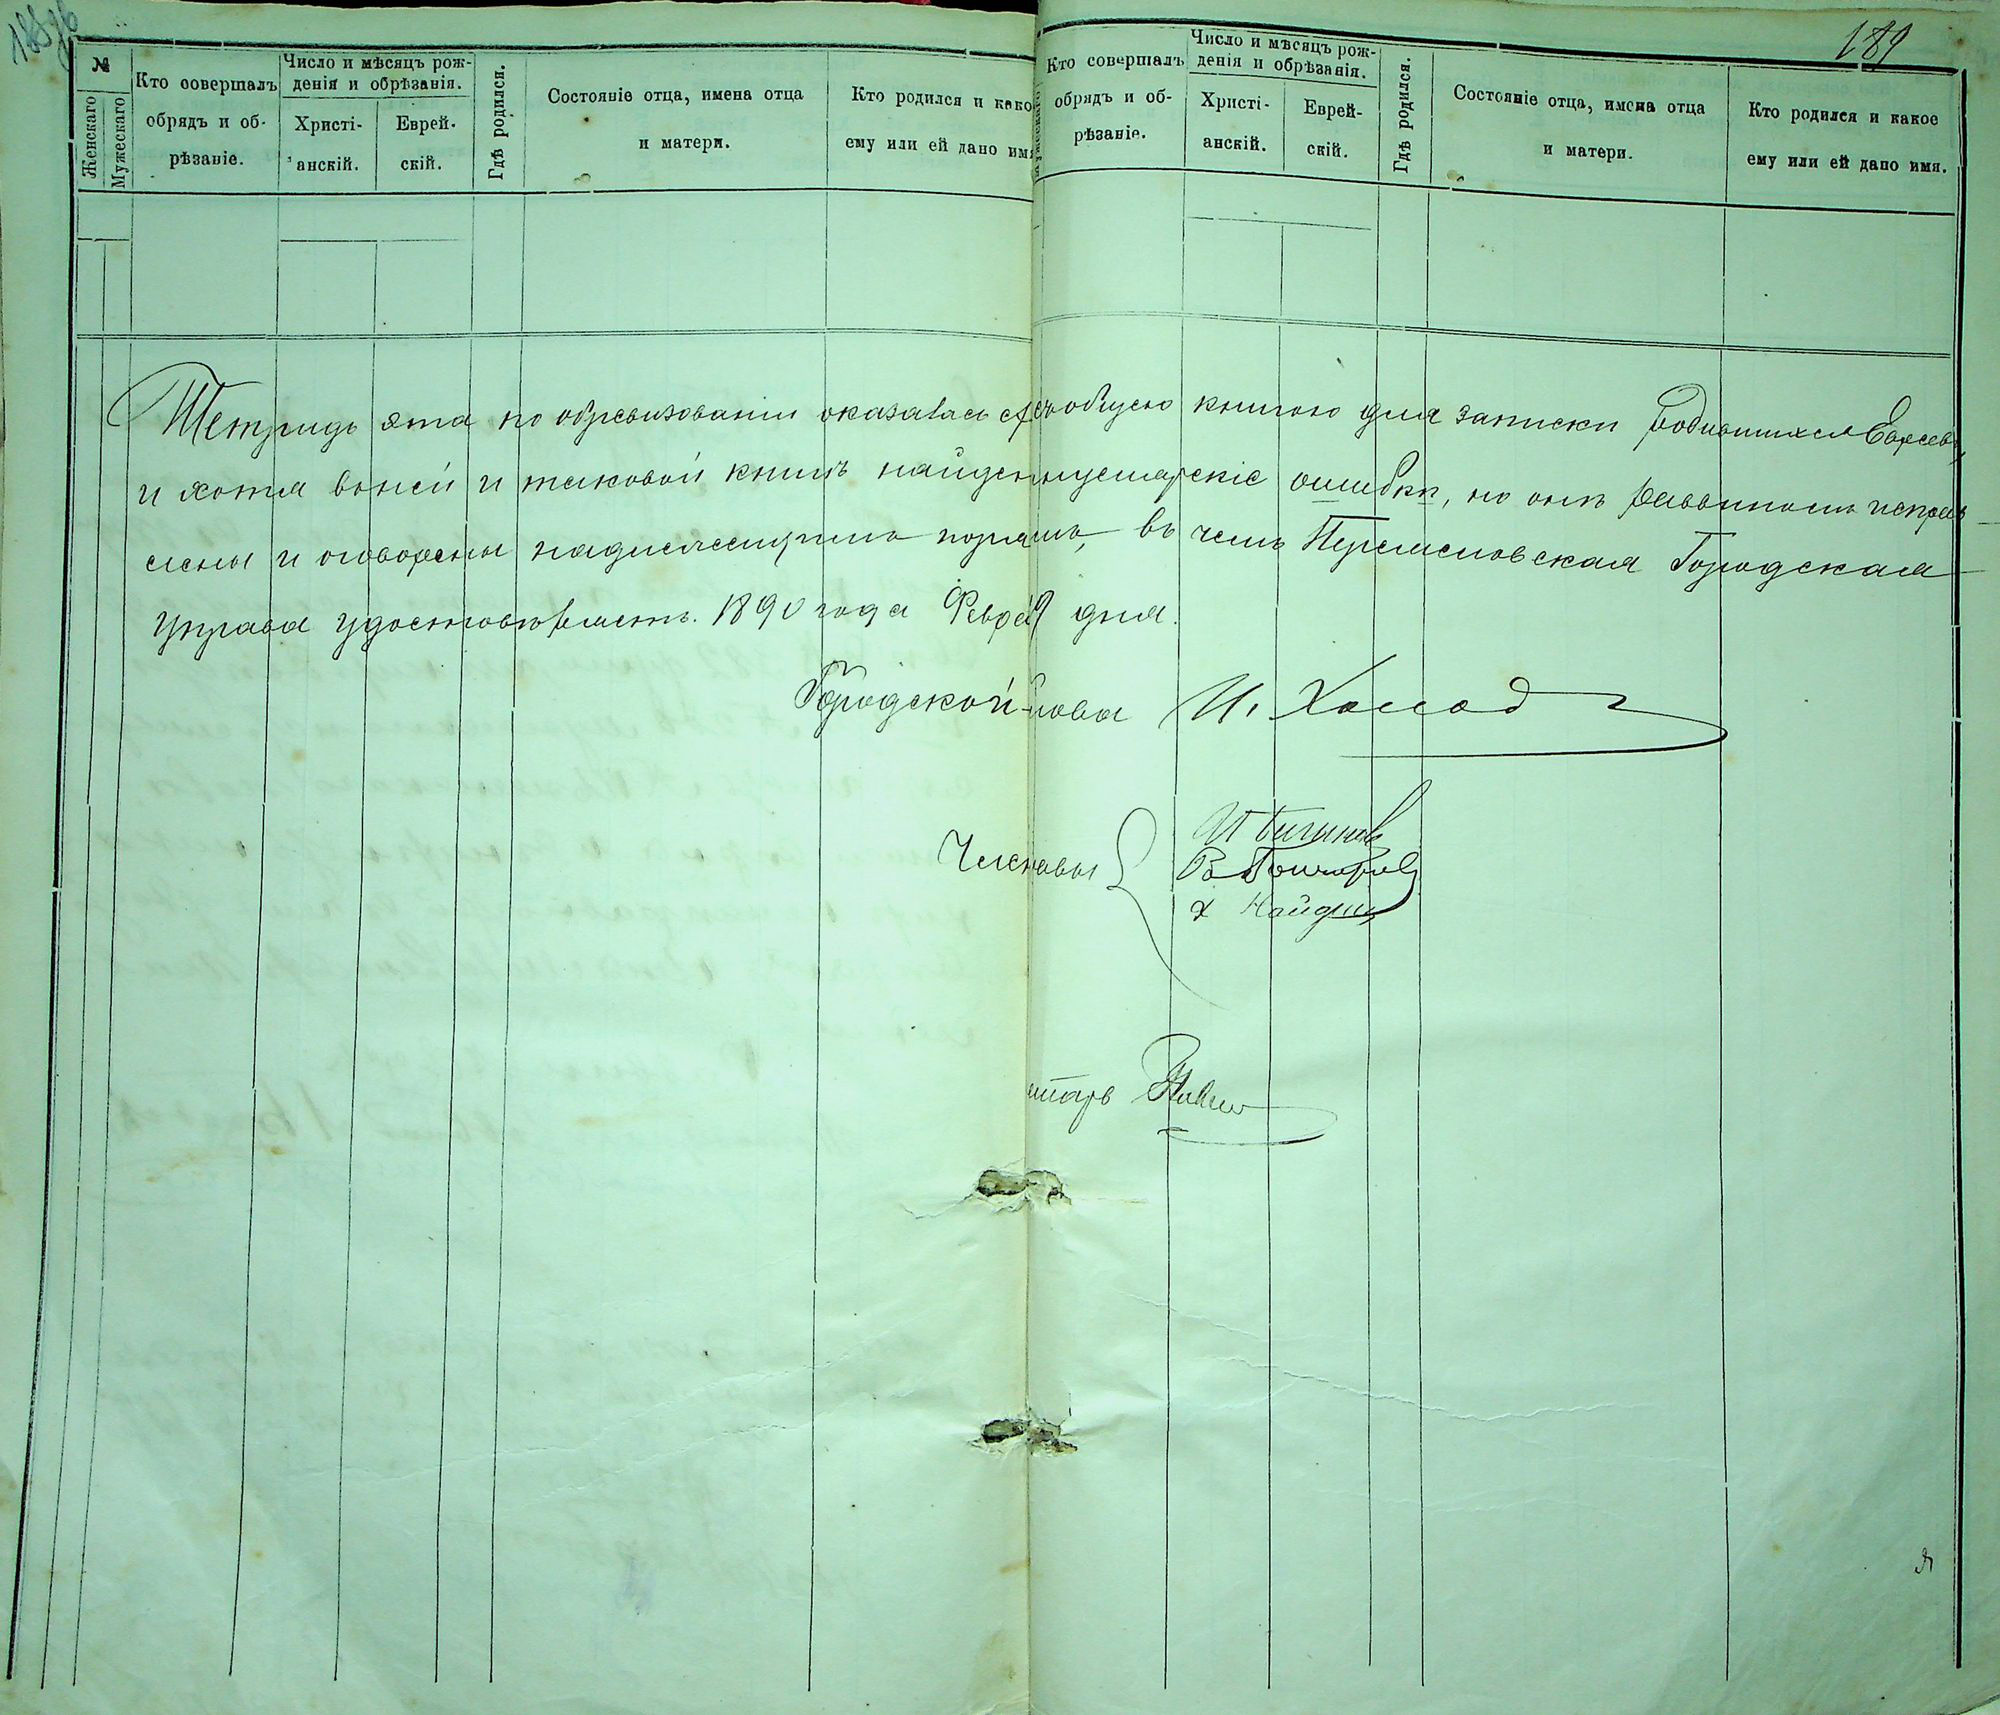 189
№
Женскаго
Мужескаго
Кто совершалъ
обрядъ и об-
рѣзаніе.
Число и мѣсяцъ рож-
денія и обрѣзанія.
Христі-
анскій.
Еврей-
скій.
Гдѣ родился.
Состояніе отца, имена отца
и матери.
Кто родился и како
ему или ей дано имя
Кто совершалъ
обрядъ и об-
рѣзаніе.
Число и мѣсяцъ рож-
денія и обрѣзанія.
Христі-
анскій.
Еврей-
скій.
Гдѣ родился.
Состояніе отца, имена отца
и матери.
Кто родился и какое
ему или ей дано имя.
Тетрадь эта по обревизованіи оказалась съ общею книгою для записки родившихся Евреевъ,
и хотя в оней и таковой книгѣ найдены ошибки, но онѣ исправ
лены и оговорены надлежащимъ порядк, въ чемъ Городская
управа удостовѣряетъ. 1890 года Февра 9 дня.
Городской лова И. Холод
Члены управы
В. Гончаровъ
Х Найдин
тарь